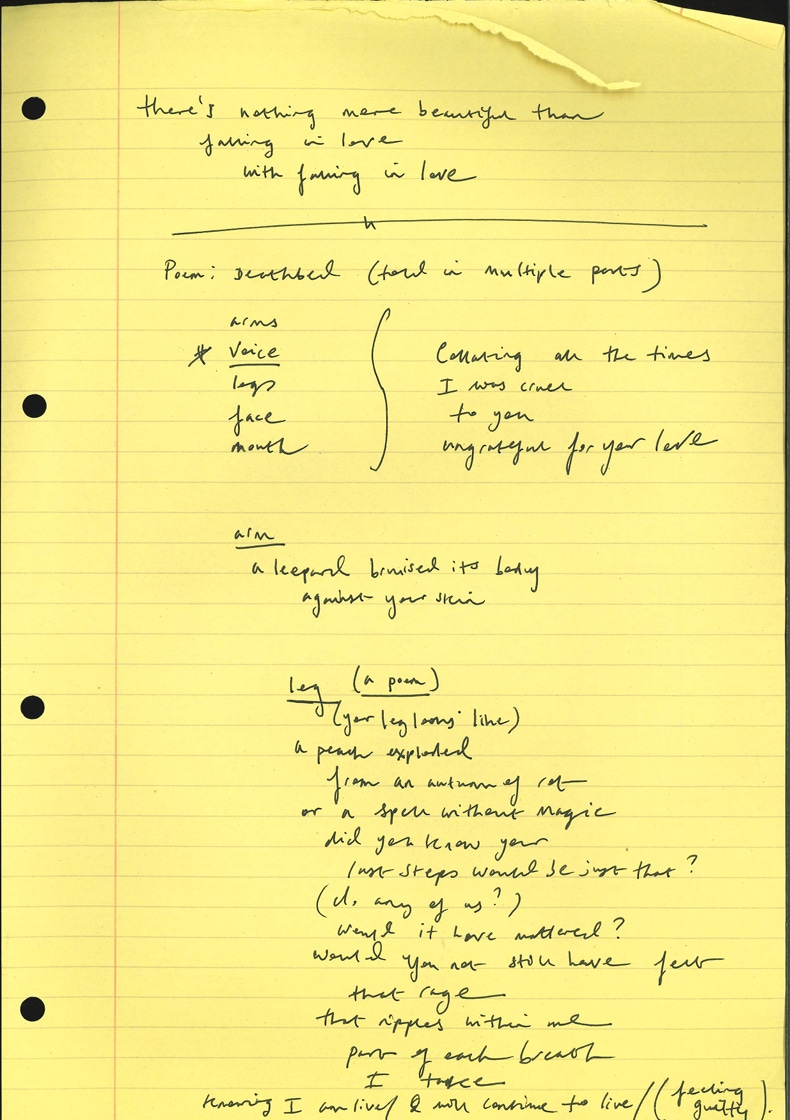 there's nothing more beautiful than
falling in love
with falling in love
Poem: Deathbed (told in multiple parts)
arms
* Voice
legs
face
mouth
Collating all the times
I was cruel
to you
ungrateful for your love
arm
a leopard bruised its body
against your skin
leg (a poem)
(your leg looks like)
a peach exploded
from an autumn of rot
or a spell without magic
did you know your
last steps would be just that?
(do any of us?)
would it have mattered?
would you not still have felt
that rage
that ripples within me
part of each breath
I take
knowing I am live/ & will continue to live/ (feeling guilty).